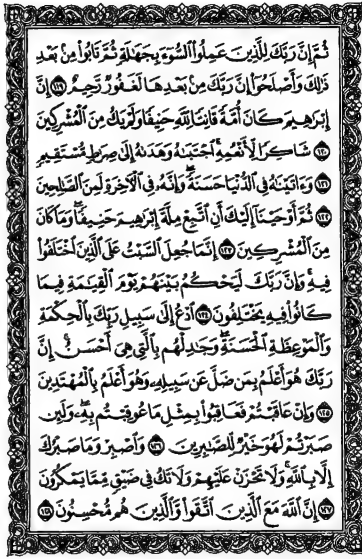 ثُمَّ إِنَّ رَبَّكَ لِلَّذِينَ عَمِلُوا۟ ٱلسُّوٓءَ بِجَهَٰلَةٍ ثُمَّ تَابُوا۟ مِنۢ بَعْدِ
ذَٰلِكَ وَأَصْلَحُوٓا۟ إِنَّ رَبَّكَ مِنۢ بَعْدِهَا لَغَفُورٌ رَّحِيمٌ ١١٩ إِنَّ
إِبْرَٰهِيمَ كَانَ أُمَّةً قَانِتًا لِّلَّهِ حَنِيفًا وَلَمْ يَكُ مِنَ ٱلْمُشْرِكِينَ
١٢٠ شَاكِرًا لِّأَنْعُمِهِ ۚ ٱجْتَبَىٰهُ وَهَدَىٰهُ إِلَىٰ صِرَٰطٍ مُّسْتَقِيمٍ
١٢١ وَءَاتَيْنَٰهُ فِى ٱلدُّنْيَا حَسَنَةً ۖ وَإِنَّهُۥ فِى ٱلْءَاخِرَةِ لَمِنَ ٱلصَّٰلِحِينَ
١٢٢ ثُمَّ أَوْحَيْنَآ إِلَيْكَ أَنِ ٱتَّبِعْ مِلَّةَ إِبْرَٰهِيمَ حَنِيفًا ۖ وَمَا كَانَ
مِنَ ٱلْمُشْرِكِينَ ١٢٣ إِنَّمَا جُعِلَ ٱلسَّبْتُ عَلَى ٱلَّذِينَ ٱخْتَلَفُوا۟
فِيهِ ۚ وَإِنَّ رَبَّكَ لَيَحْكُمُ بَيْنَهُمْ يَوْمَ ٱلْقِيَٰمَةِ فِيمَا
كَانُوا۟ فِيهِ يَخْتَلِفُونَ ١٢٤ ٱدْعُ إِلَىٰ سَبِيلِ رَبِّكَ بِٱلْحِكْمَةِ
وَٱلْمَوْعِظَةِ ٱلْحَسَنَةِ ۖ وَجَٰدِلْهُم بِٱلَّتِى هِىَ أَحْسَنُ ۚ إِنَّ
رَبَّكَ هُوَ أَعْلَمُ بِمَن ضَلَّ عَن سَبِيلِهِۦ ۖ وَهُوَ أَعْلَمُ بِٱلْمُهْتَدِينَ
١٢٥ وَإِنْ عَاقَبْتُمْ فَعَاقِبُوا۟ بِمِثْلِ مَا عُوقِبْتُم بِهِۦ ۖ وَلَئِن
صَبَرْتُمْ لَهُوَ خَيْرٌ لِّلصَّٰبِرِينَ ١٢٦ وَٱصْبِرْ وَمَا صَبْرُكَ
إِلَّا بِٱللَّهِ ۚ وَلَا تَحْزَنْ عَلَيْهِمْ وَلَا تَكُ فِى ضَيْقٍ مِّمَّا يَمْكُرُونَ
١٢٧ إِنَّ ٱللَّهَ مَعَ ٱلَّذِينَ ٱتَّقَوا۟ وَّٱلَّذِينَ هُم مُّحْسِنُونَ ١٢٨